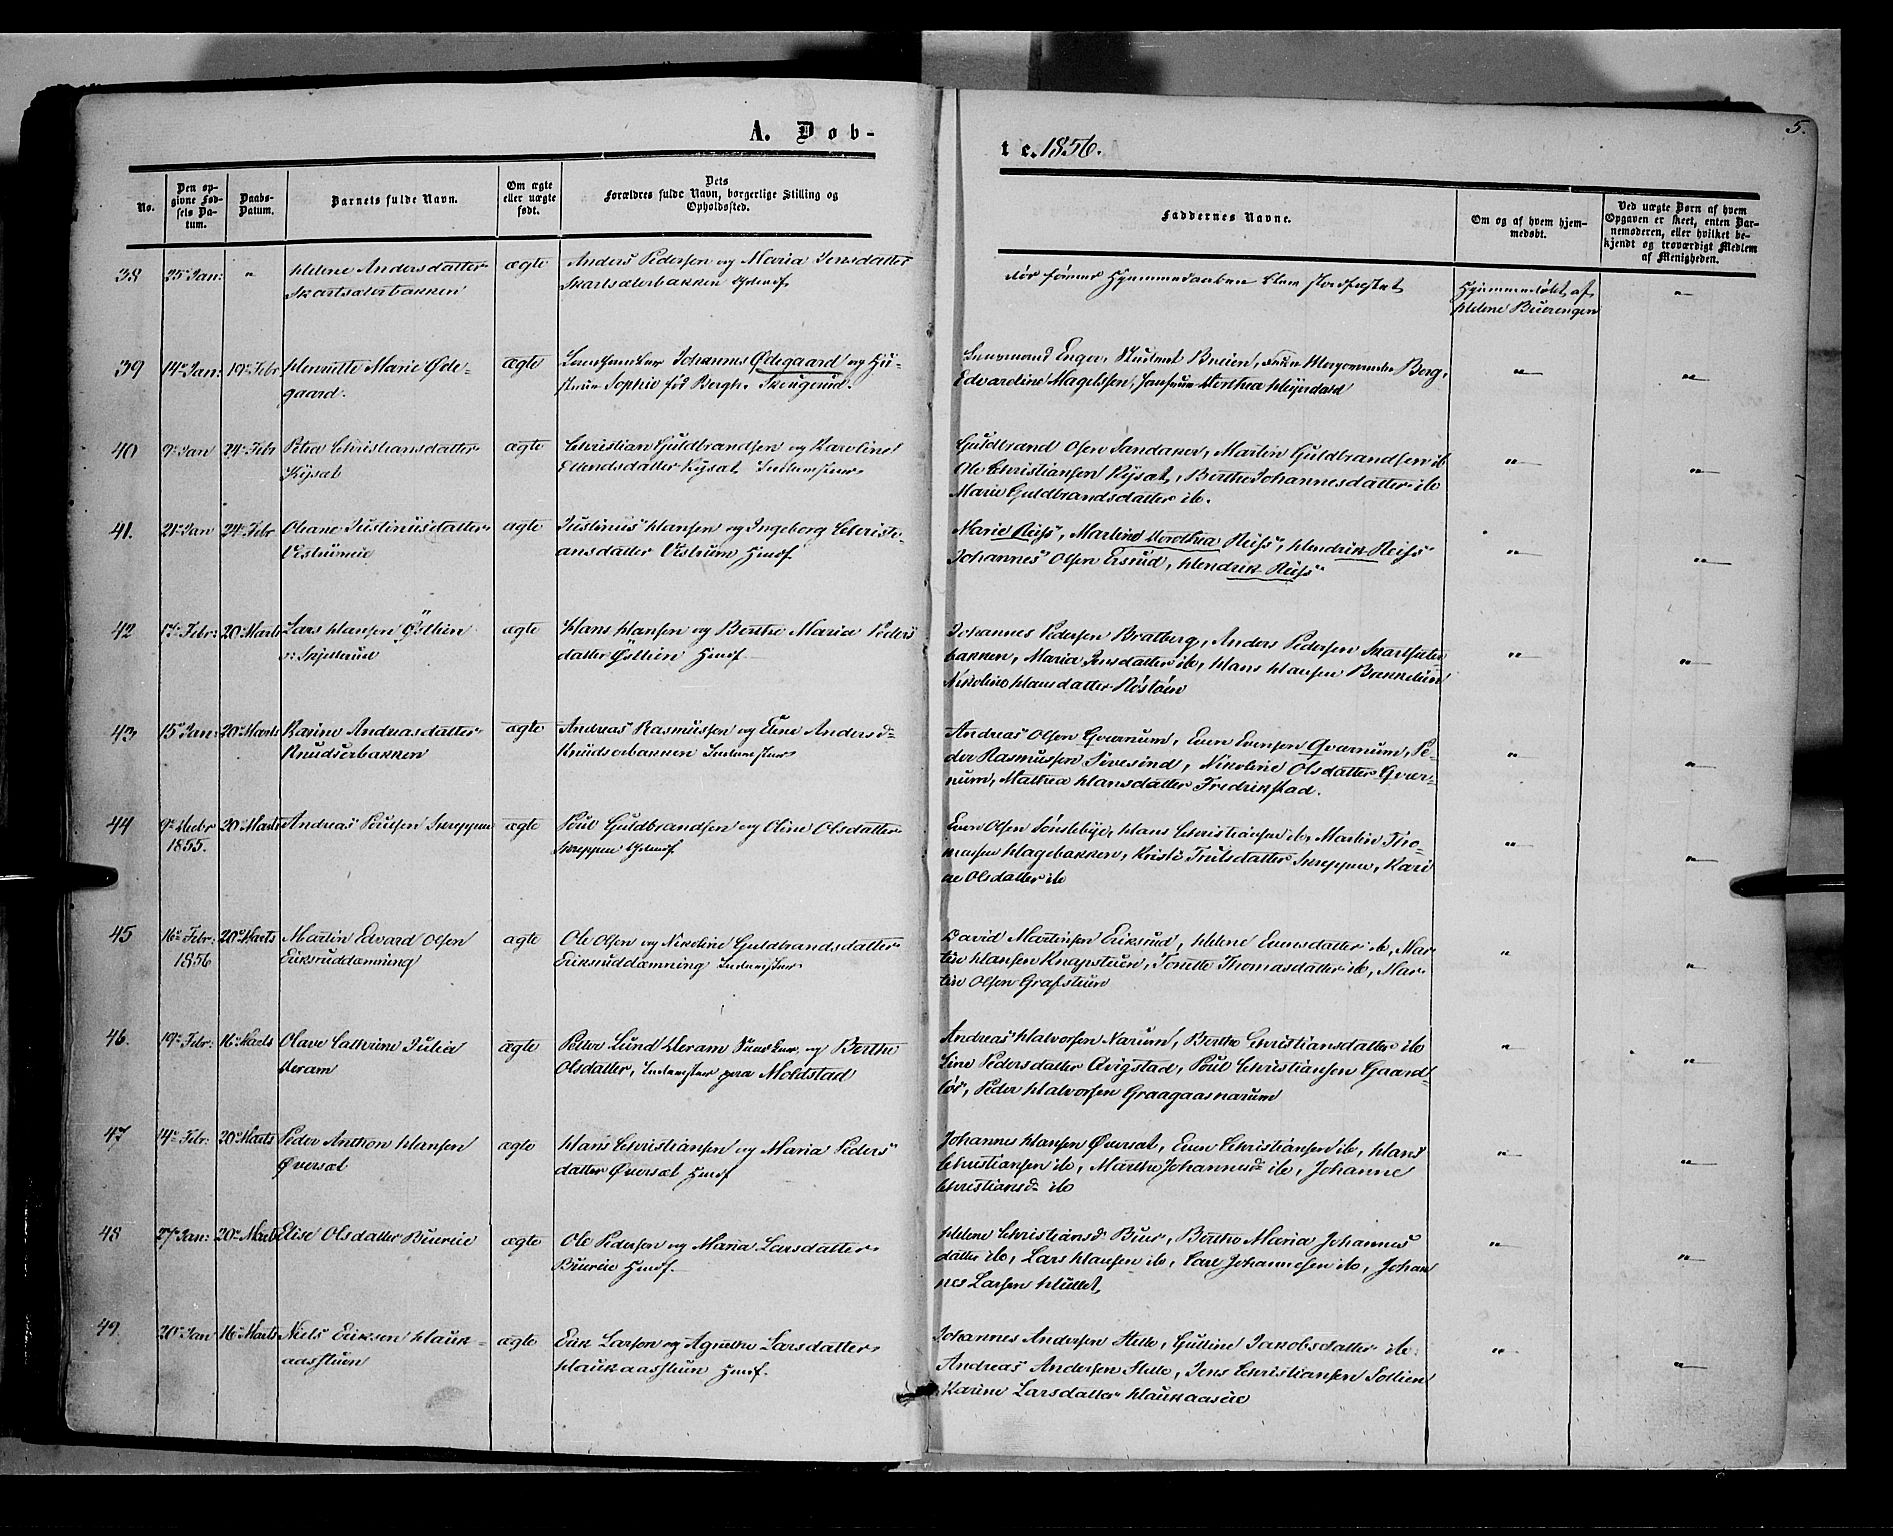 A. Døb-
te. 1856.
5.
No.
Den op-
givne Fød-
sels Da-
tum.
Daabs-
Datum.
Barnets fulde Navn.
Om ægte
eller uægte
født.
Dets
Forældres fulde Navn, borgerlige Stilling og
Opholdssted.
Faddernes Navne.
Om og af hvem hjem-
medøbt.
Ved uægte Børn af hvem
Opgaven er skeet, enten Bar-
nemoderen, eller hvilket be-
kjendt og troværdigt Medlem
af Menigheden.
38 25 Jan: " Helene Andersdatter ægte Anders Pedersen og Maria Jensdatter
Hjemmedøbt af
Helene Buerengen "
39 14 Jan: 19 Febr Henriette Marie Øde- ægte Johannes Ødegaard og Hu-
gaard. Sophie fød Bergh.
Edvardine Magelssen, Jomfru Dorthea Heyerdahl " "
40 9 Jan 24 Febr Petra Christiansdatter ægte Christian Guldbrandsen og Karoline
Kysæt Erlendsdatter Kysæt Inderster
Guldbrand Olsen, Martin Guldbrandsen ib
Ole Christiansen Kysæt, Berthe Johannesdatter ib
Marie Guldbrandsdatter ib. " "
41. 21 Jan 24 Febr Oleane Justinusdatter ægte Justinus Hansen og Ingeborg Christi-
ansdatter Vestrum Huusf.
Marie Reiss, Martine Dorothea Reiss, Hendrik Reiss
Johannes Olsen Ersrud, Hendrik Reiss " "
42 17 Febr: 20 Marts Lars Hansen Østlien ægte Hans Hansen og Berthe Maria Peders
datter Østlien Huusf.
Johannes Pedersen Bratberg, Anders Pedersen
bakken, Maria Jensdatter ib, Hans Hansen
Nikoline Hansdatter " "
43 15 Jan: 20 Marts Karine Andreasdatter ægte Andreas Rasmussen og Eline Andersd
Knudserbakken Knudserbakken Inderster
Andreas Olsen Qværnum, Even Evensen Qværnum, Pe-
der Rasmussen Sivesind, Nikoline Olsdatter Qvær-
num, Mathea Hansdatter Fredrikstad. " "
44 9 Decbr 20 Marts Andreas Poulsen Skreppen ægte Poul Guldbrandsen og Oline Olsdatter
1855. Skreppen
Even Olsen Sønsteby, Hans Christiansen ib, Martin Tho-
massen Hagebakken, Kristi Trulsdatter Skreppen, Kari
ne Olsdatter ib " "
45 16 Febr: 20 Marts Martin Edvard Olsen ægte Ole Olsen og Nikoline Guldbrandsdatter
1856 Eriksruddæmning Eriksruddæmning Inderster
David Martinsen Eriksrud, Helene Evensdatter ib, Mar-
tin Hansen Knapstuen, Tonette Thomasdatter ib, Mar-
tin Olsen Grafstuen " "
46. 19 Febr: 16 Marts Olave Cathrine Julia ægte Peter Lund Heram og Berthe
Heram Olsdatter, Inderster paa Moldstad
Andreas Halvorsen Narum, Berthe Christiansdatter ib
Line Pedersdatter Qvigstad, Poul Christiansen Gaard-
Peder Halvorsen Graagaasnarum " "
47 14 Febr: 20 Marts Peder Anthon Hansen ægte Hans Christiansen og Maria Peders
Øversæt datter Øversæt Huusf
Johannes Hansen Øversæt, Even Christiansen ib, Hans
Christiansen ib, Marthe Johannesd ib, Johanne
Christiansd ib " "
48 27 Jan: 20 Marts Elise Olsdatter Bureie ægte Ole Pedersen og Maria Larsdatter
Bureie Huusf.
Helene Christiansd Buer, Berthe Maria Johannes
datter ib, Lars Hansen ib, Carl Johannesen ib, Johan
nes Larsen Hullet, " "
49. 20 Jan 16 Marts Niels Eriksen Hauk- ægte Erik Larsen og Agnethe Larsdatter
aasstuen Haukaasstuen Huusf.
Johannes Andersen Helle, Gulline Jakobsdatter ib
Andreas Andersen Helle, Jens Christiansen Sollien
Karine Larsdatter Haukaaseie " "